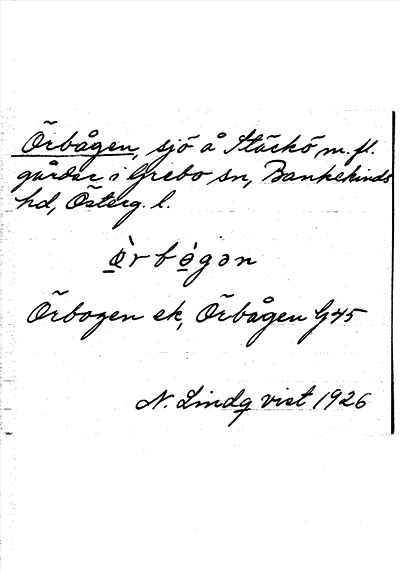 Örbågen, sjö å Stäckö m. fl.
gårdar i Grebo sn, Bankekinds
hd, Österg. l.
ø̀rbo̱gən
Örbogen ek, Örbågen G45
N. Lindqvist 1926